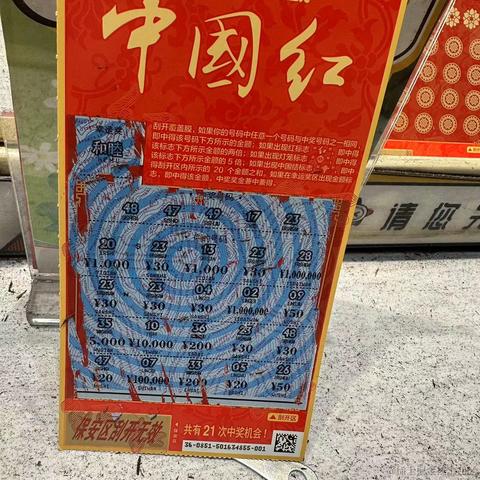 中國红
刮开覆盖膜,如果你的号码中任意一个号码与中奖号码之一相同,
即中得该号码下方所示的金额;如果出现红标志
该标志下方所示金额的两倍;如果出现灯笼标志
该标志下方所示金额的5倍;如果出现中国结标志
得刮开区内所示的 20 个金额之和。如果在幸运奖区出现金额标
志,即中得该金额。中奖奖金兼中兼得。
和睦
48 47 49 17 23
20 23 13 23 28
¥1,000 ¥30 ¥1,000 ¥30 ¥1,000,000
23 23 04 02 09
¥30 ¥30 ¥30 ¥1,000,000 ¥50
35 10 36 23 48
5,000 ¥10,000 ¥200 ¥30 ¥30
47 07 33 05 26
¥20 ¥100,000 ¥200 ¥20 ¥50
刮开区
保安区刮开无效
保安区
共有21次中奖机会!
36-0851-501634855-001
请您先